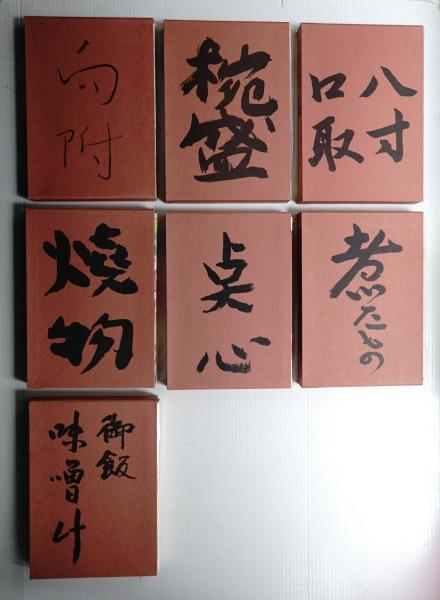 向附
椀盛
八寸
口取
燒物
点心
煮たもの
御飯
味噌汁